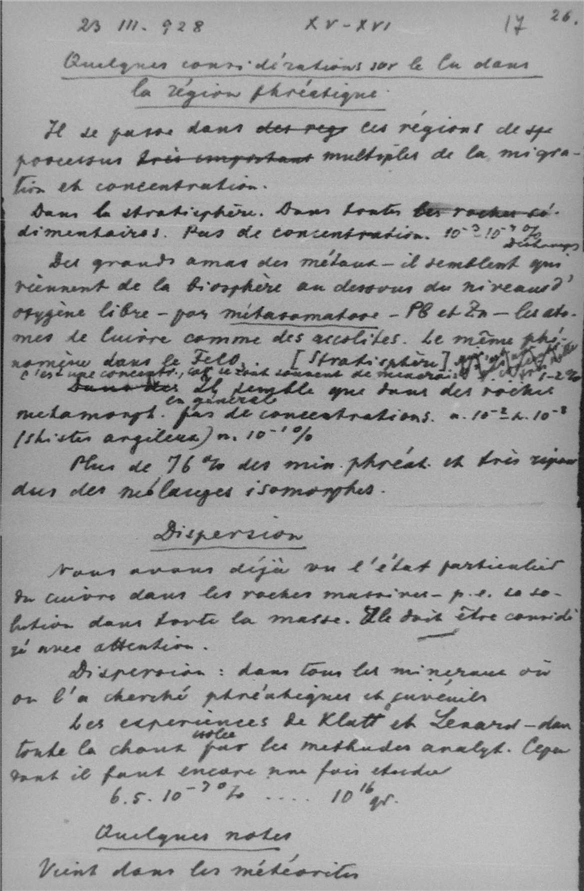 23 III. 928 XV-XVI 17 26.
Quelques considérations sur le Cu dans
la région phréatique.
Il se passe dans des reg ces régions des
processus très important multiples de la migra-
tion et concentration.
Dans la stratisphère. Dans toutes les roches sé-
dimentaires. Pas de concentration. 10-3-10-7%
Des grands amas des métaux - il semblent qui
viennent de la biosphère au dessous du niveaus d'
oxygène libre - par métasomatose - Pb et Zn - les ato-
mes de Cuivre comme des ascolites. Le même phé-
nomène dans le FeCO3. [Stratisphère]
C'est une concentr., car ce sont souvent de minerais 1-2%
Dans des Il semble que dans des roches
en générale
metamorph. pas de concentrations. n. 10-2-n. 10-3
(shistes argileux) n. 10-1%
Plus de 76% des min. phréat. et très répan
dus des mélanges isomorphes.
Dispersion
Nous avons déjà vu l'état particulier
du cuivre dans les roches massives - p.e. sa so-
lution dans toute la masse. Elle doit être considé
ré avec attention.
Dispersion : dans tous les mineraux où
on l'a cherché phréatiques et juvenils
Les experiences de Klatt et Lenard - dans
toute la chaux par les methodes analyt. Cepen
dant il faut encore une fois etudier
6.5. 10-7% .... 10 16 gr.
Quelques notes
Vient dans les météorites